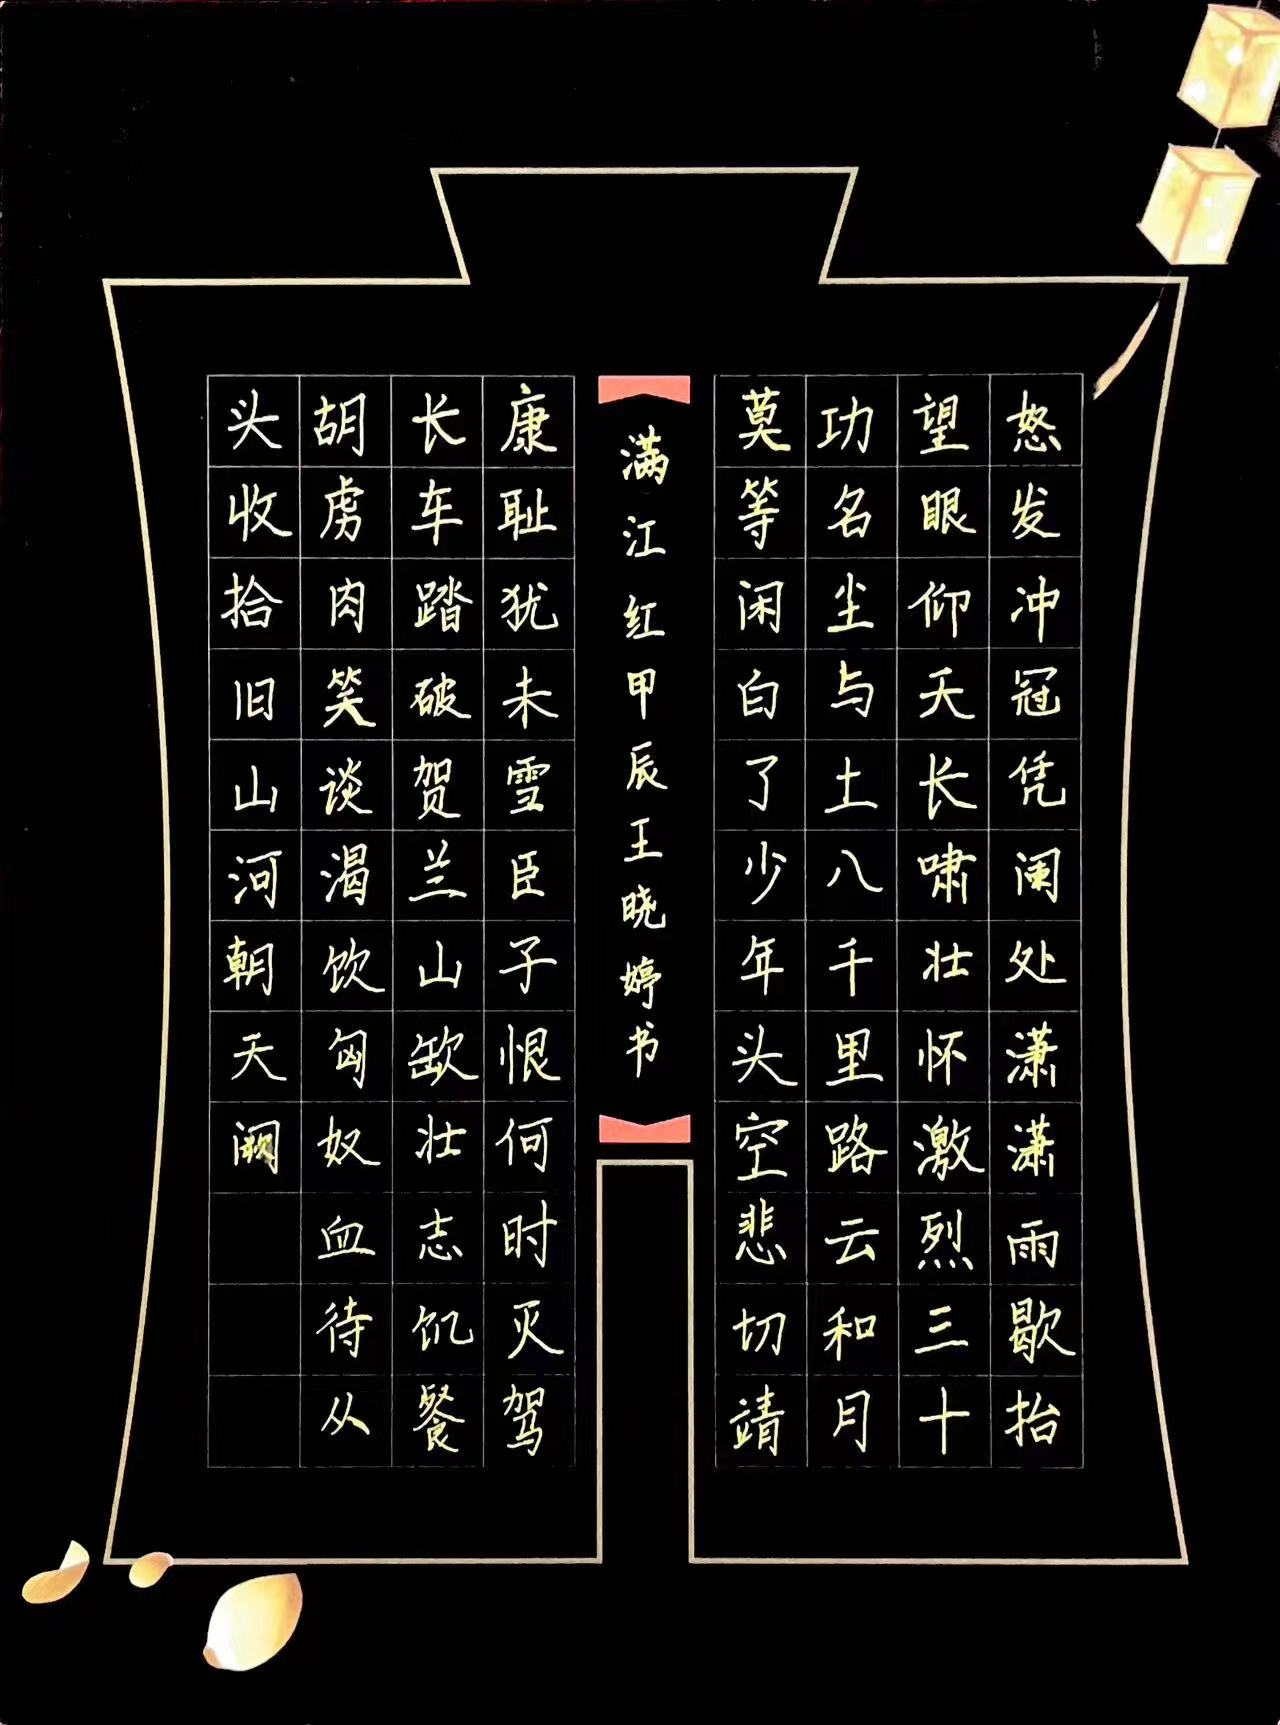 怒发冲冠凭阑处潇潇雨歇抬
望眼仰天长啸壮怀激烈三十
功名尘与土八千里路云和月
莫等闲白了少年头空悲切靖
满江红甲辰王晓婷书
康耻犹未雪臣子恨何时灭驾
长车踏破贺兰山缺壮志饥餐
胡虏肉笑谈渴饮匈奴血待从
头收拾旧山河朝天阙